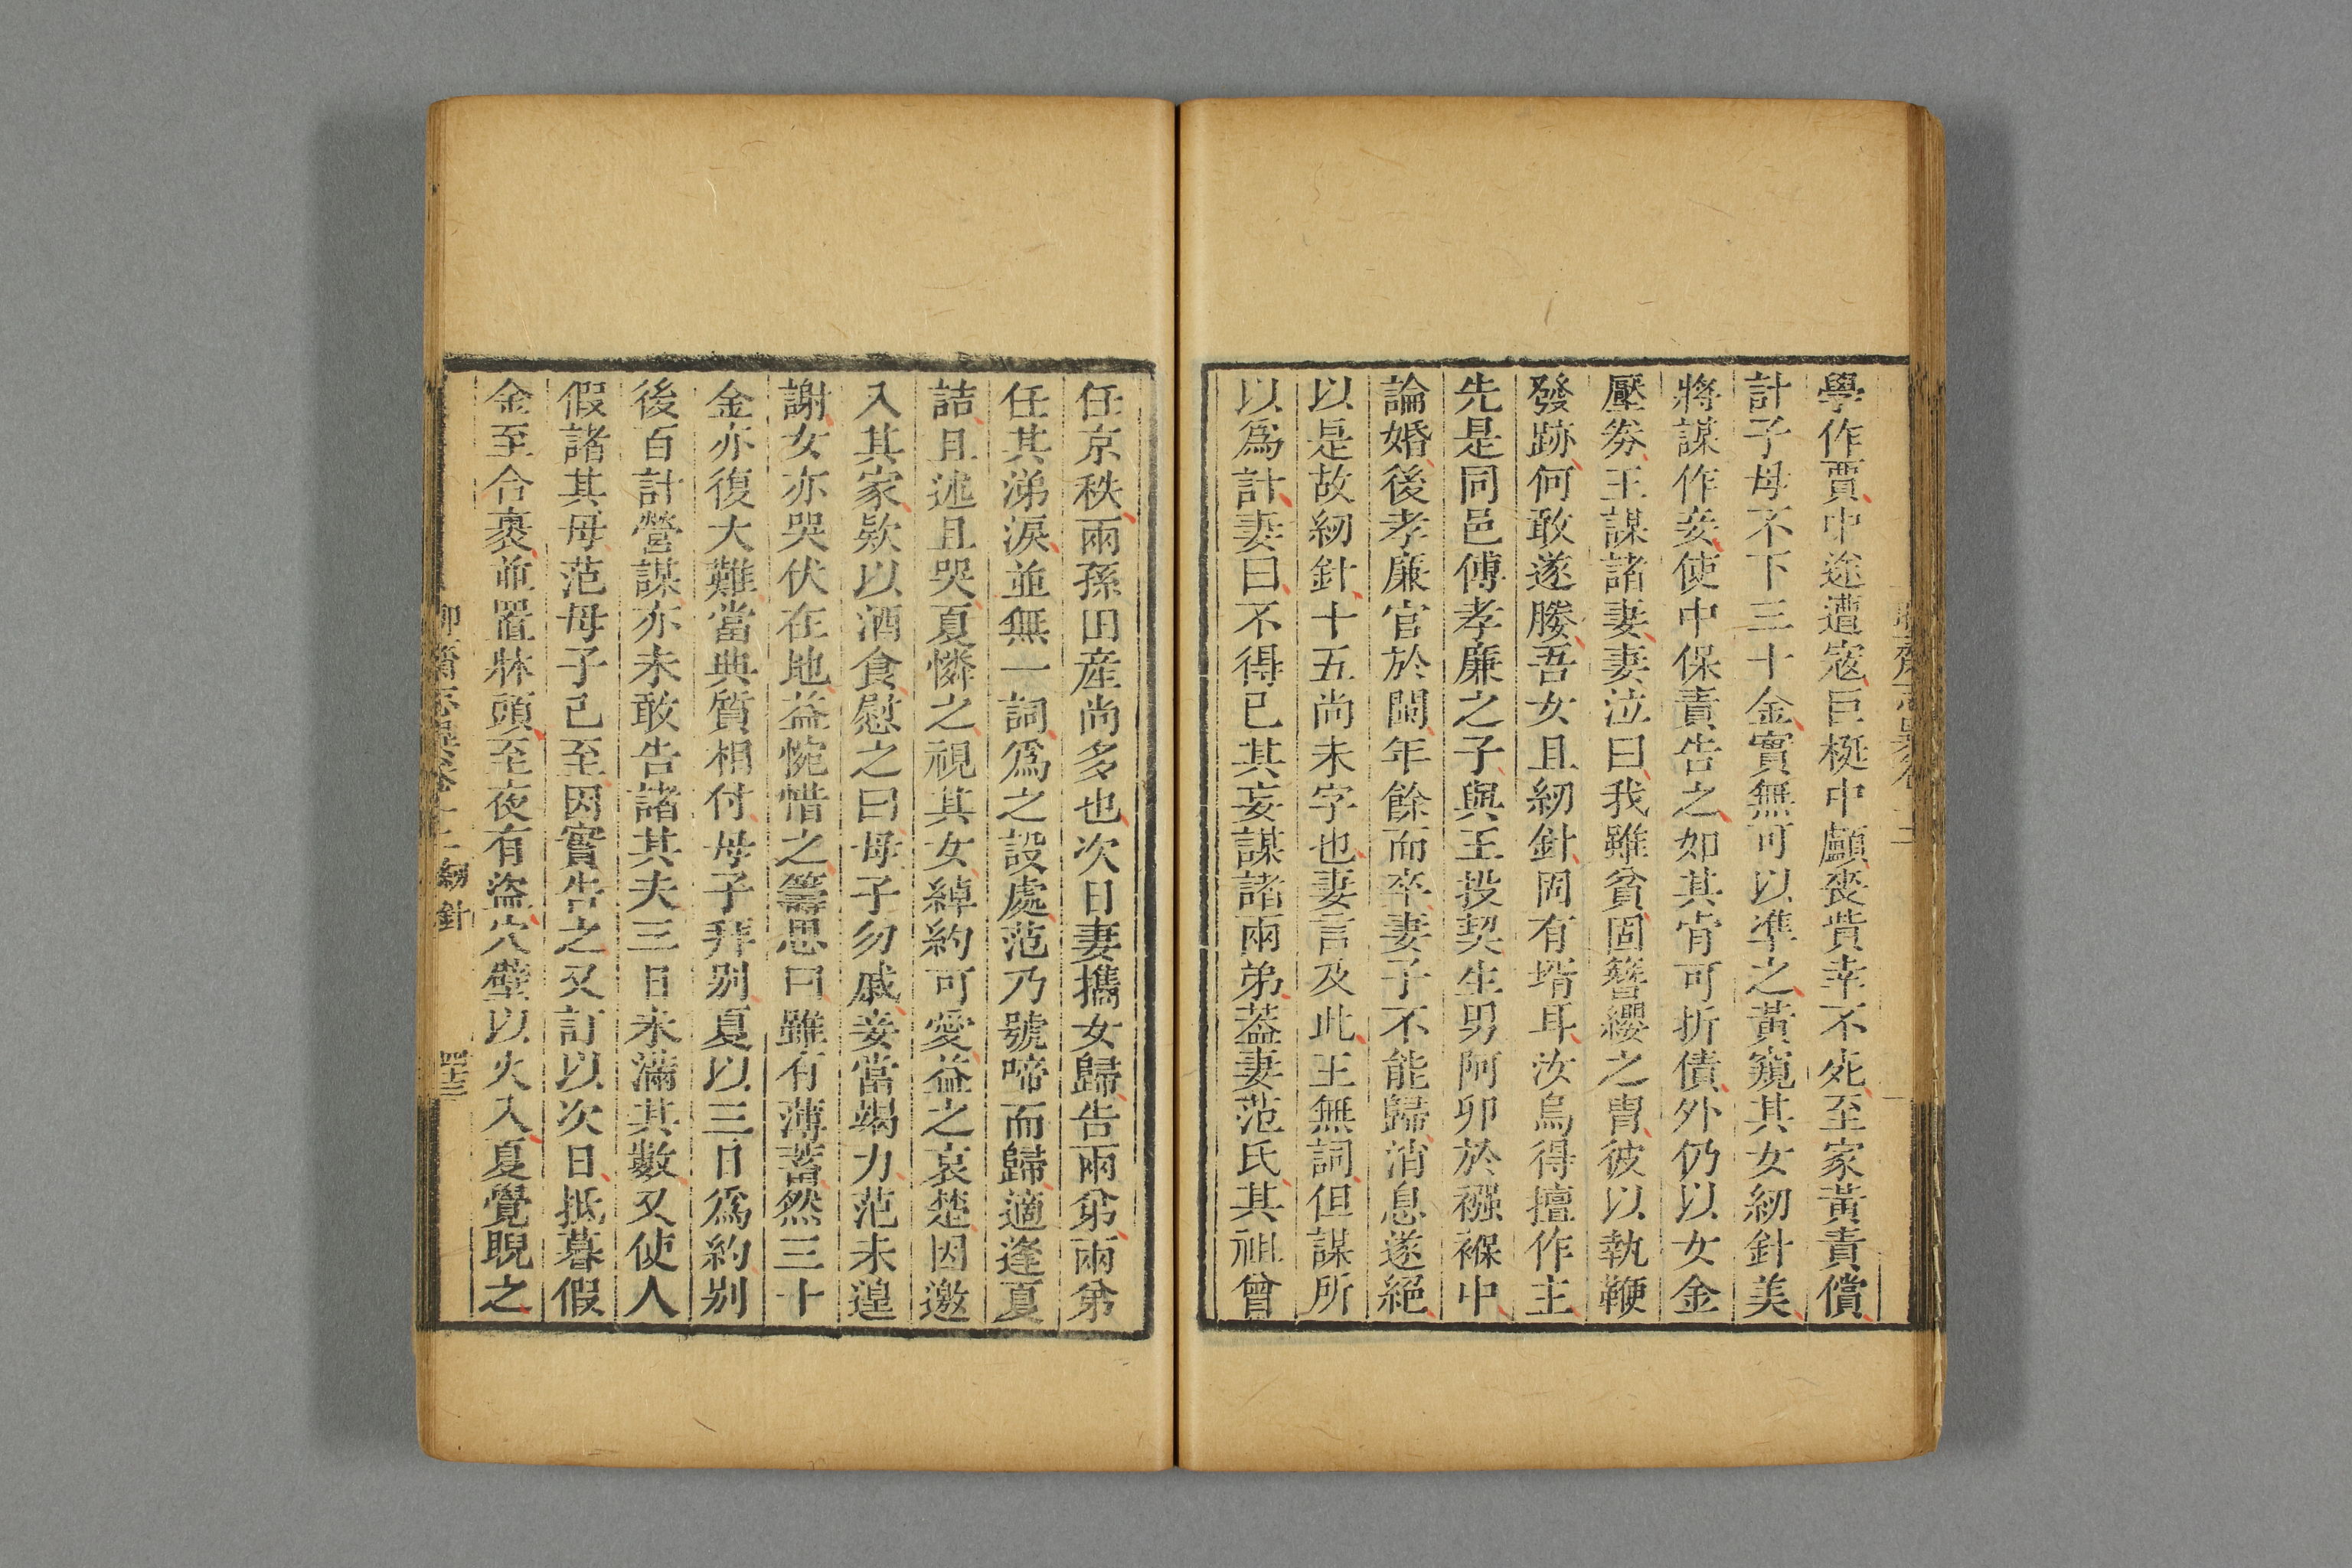 學作賈中途遭寇巨梃中顱喪貲幸不死至家黃責償
計子母不下三十金實無可以準之黃窺其女紉針美
將謀作妾使中保責告之如其肯可折債外仍以女金
壓劵王謀諸妻妻泣曰我雖貧固簪纓之冑彼以執鞭
發跡何敢遂媵吾女且紉針固有壻耳汝烏得擅作主
先是同邑傅孝廉之子與王投契生男阿卯於襁褓中
論婚後孝廉官於閩年餘而卒妻子不能歸消息遂絕
以是故紉針十五尚未字也妻言及此王無詞但謀所
以爲計妻曰不得已其妄謀諸兩弟葢妻范氏其祖曾
任京秩兩孫田産尚多也次日妻攜女歸告兩弟兩弟
任其涕淚並無一詞爲之設處范乃號啼而歸適逢夏
詰且述且哭夏憐之視其女綽約可愛益之哀楚因邀
入其家欵以酒食慰之曰母子勿戚妾當竭力范未遑
謝女亦哭伏在地益惋惜之籌思曰雖有薄蓄然三十
金亦復大難當典質相付母子拜别夏以三日爲約别
後百計營謀亦未敢告諸其夫三日未滿其數又使人
假諸其母范母子已至因實告之又訂以次日抵暮假
金至合裹並置牀頭至夜有盜穴壁以火入夏覺睨之
紉針